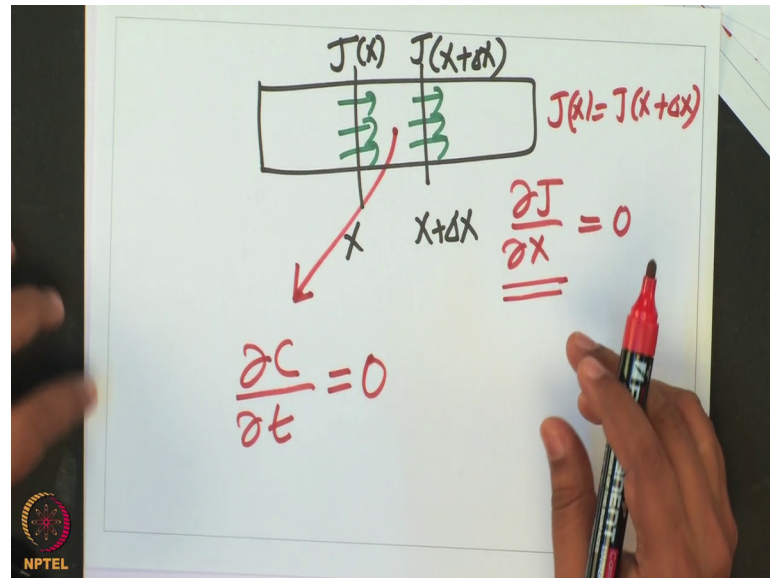 J(x) J(x+Δx)
J(x)=J(x+Δx)
x x+Δx
∂J/∂x = 0
∂C/∂t = 0
NPTEL